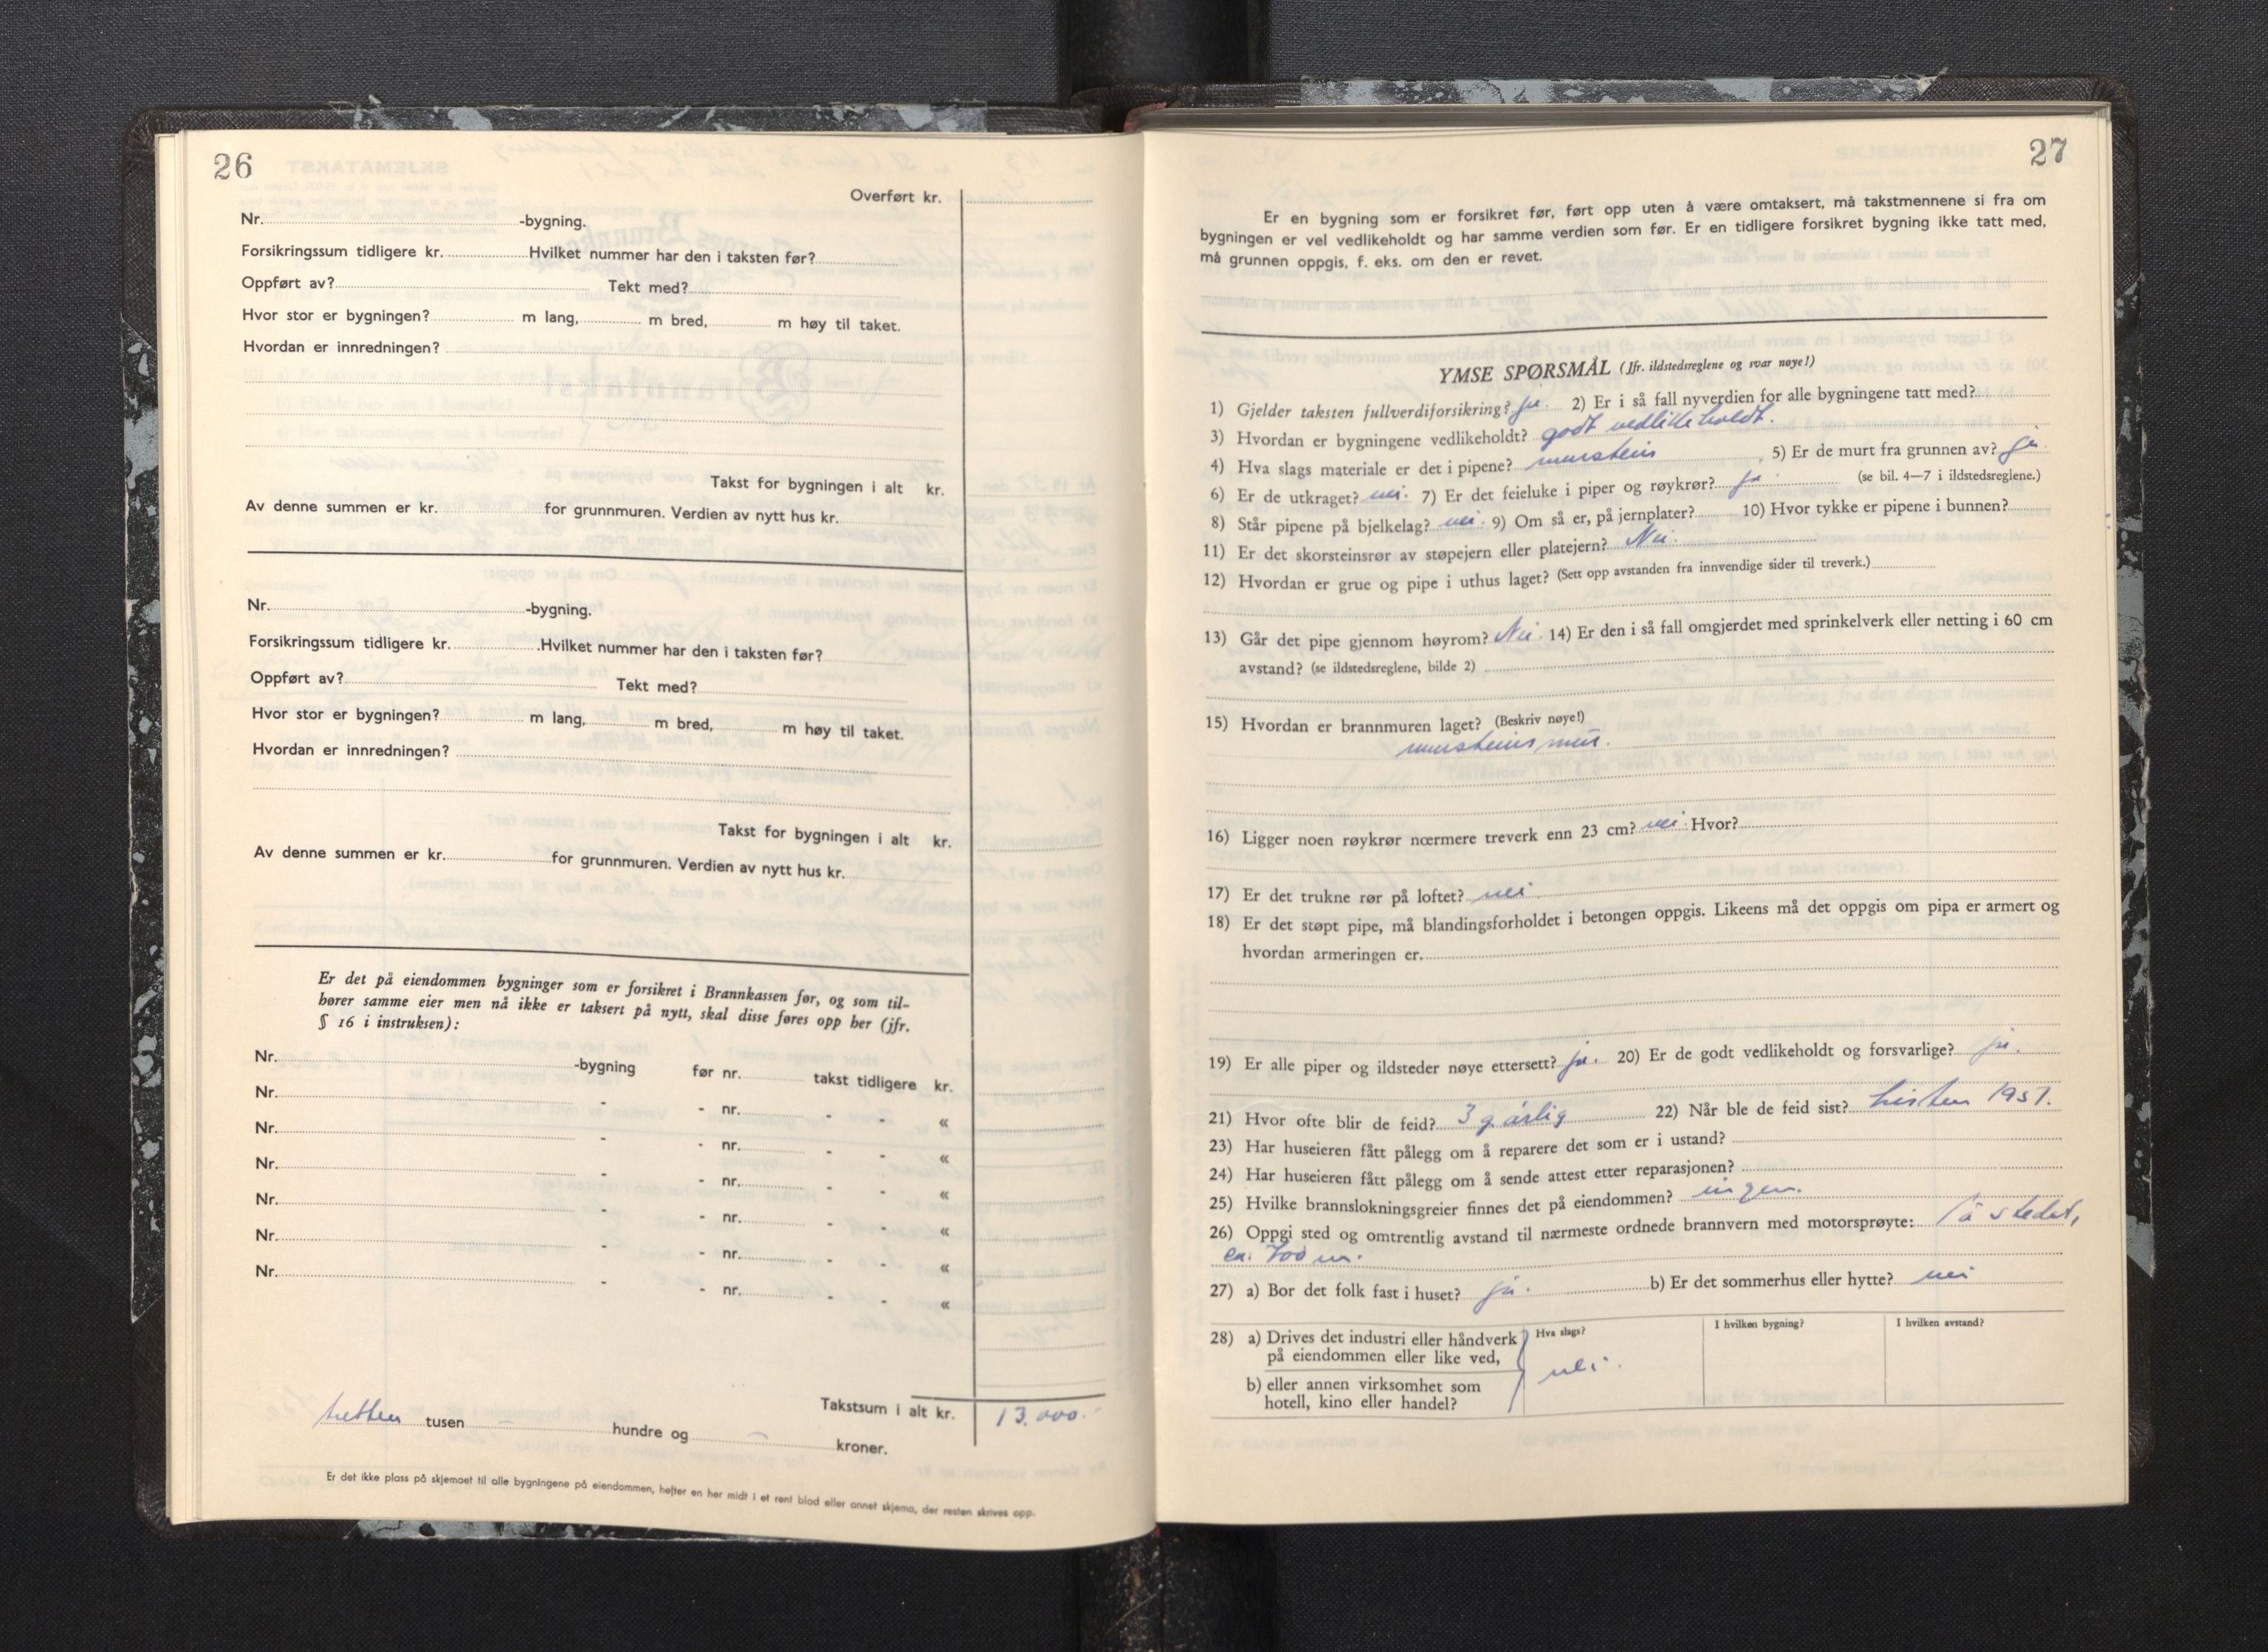 26
Overført kr.
Nr. -bygning.
Forsikringssum tidligere kr. Hvilket nummer har den i taksten før?
Oppført av? Tekt med?
Hvor stor er bygningen? m lang, m bred, m høy til taket.
Hvordan er innredningen?
Takst for bygningen i alt kr.
Av denne summen er kr. for grunnmuren. Verdien av nytt hus kr.
Nr. -bygning.
Forsikringssum tidligere kr. Hvilket nummer har den i taksten før?
Oppført av? Tekt med?
Hvor stor er bygningen? m lang, m bred, m høy til taket.
Hvordan er innredningen?
Takst for bygningen i alt kr.
Av denne summen er kr. for grunnmuren. Verdien av nytt hus kr.
Er det på eiendommen bygninger som er forsikret i Brannkassen før, og som til-
hører samme eier men nå ikke er taksert på nytt, skal disse føres opp her (jfr.
§ 16 i instruksen):
Nr. -bygning før nr. takst tidligere kr.
Nr. - - nr. - - «
Nr. - - nr. - - «
Nr. - - nr. - - «
Nr. - - nr. - - «
Nr. - - nr. - - «
Nr. - - nr. - - «
Takstsum i alt kr. 13.000.-
tretten tusen — hundre og — kroner.
Er det ikke plass på skjemaet til alle bygningene på eiendommen, hefter en her midt i et rent blad eller annet skjema, der resten skrives opp.
27
Er en bygning som er forsikret før, ført opp uten å være omtaksert, må takstmennene si fra om
bygningen er vel vedlikeholdt og har samme verdien som før. Er en tidligere forsikret bygning ikke tatt med,
må grunnen oppgis, f. eks. om den er revet.
YMSE SPØRSMÅL (Jfr. ildstedsreglene og svar nøye!)
1) Gjelder taksten fullverdiforsikring? ja. 2) Er i så fall nyverdien for alle bygningene tatt med?
3) Hvordan er bygningene vedlikeholdt? godt vedlikeholdt.
4) Hva slags materiale er det i pipene? murstein 5) Er de murt fra grunnen av? ja
6) Er de utkraget? nei. 7) Er det feieluke i piper og røykrør? ja (se bil. 4—7 i ildstedsreglene.)
8) Står pipene på bjelkelag? nei. 9) Om så er, på jernplater? 10) Hvor tykke er pipene i bunnen?
11) Er det skorsteinsrør av støpejern eller platejern? Nei.
12) Hvordan er grue og pipe i uthus laget? (Sett opp avstanden fra innvendige sider til treverk.)
13) Går det pipe gjennom høyrom? Nei. 14) Er den i så fall omgjerdet med sprinkelverk eller netting i 60 cm
avstand? (se ildstedsreglene, bilde 2)
15) Hvordan er brannmuren laget? (Beskriv nøye!)
mursteins mur.
16) Ligger noen røykrør nærmere treverk enn 23 cm? nei. Hvor?
17) Er det trukne rør på loftet? nei
18) Er det støpt pipe, må blandingsforholdet i betongen oppgis. Likeens må det oppgis om pipa er armert og
hvordan armeringen er.
19) Er alle piper og ildsteder nøye ettersett? ja. 20) Er de godt vedlikeholdt og forsvarlige? ja.
21) Hvor ofte blir de feid? 3 g. årlig 22) Når ble de feid sist? høsten 1951.
23) Har huseieren fått pålegg om å reparere det som er i ustand?
24) Har huseieren fått pålegg om å sende attest etter reparasjonen?
25) Hvilke brannslokningsgreier finnes det på eiendommen? ingen.
26) Oppgi sted og omtrentlig avstand til nærmeste ordnede brannvern med motorsprøyte: På stedet,
ca. 700 m.
27) a) Bor det folk fast i huset? ja. b) Er det sommerhus eller hytte? nei
28) a) Drives det industri eller håndverk Hva slags? I hvilken bygning? I hvilken avstand?
på eiendommen eller like ved,
nei.
b) eller annen virksomhet som
hotell, kino eller handel?